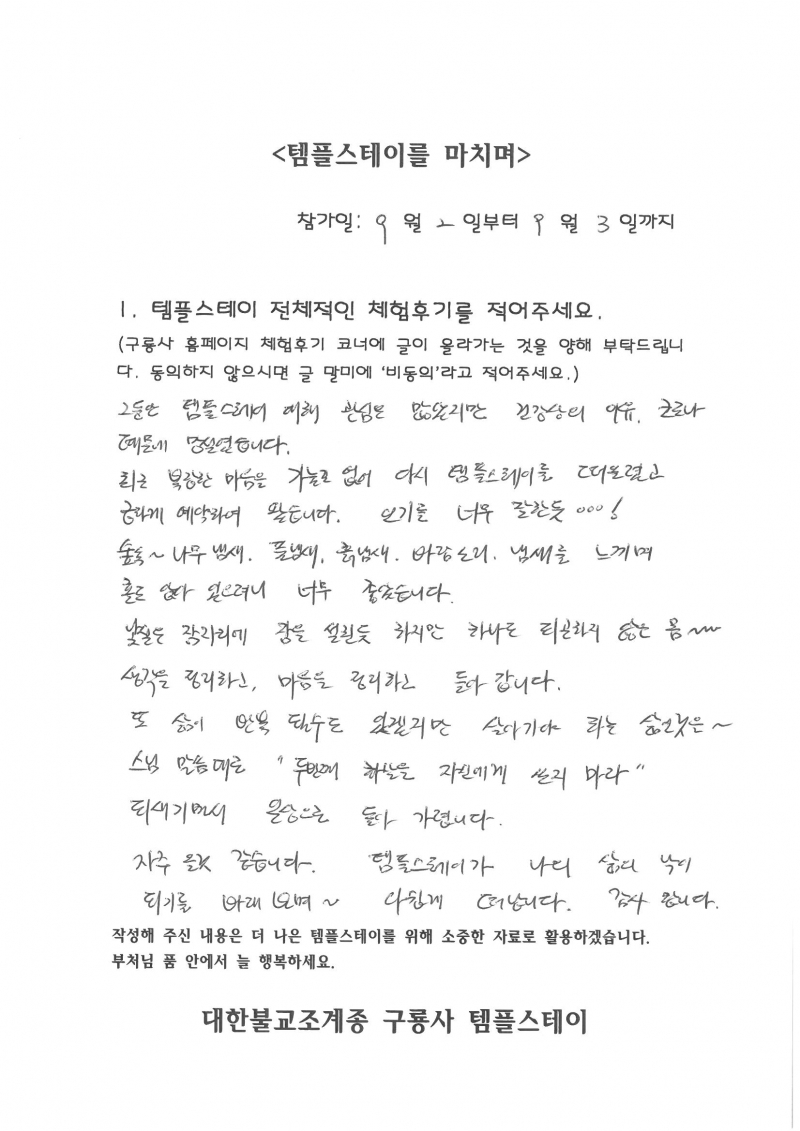 <템플스테이를 마치며>
참가일: 9 월 2 일부터 9 월 3 일까지
1. 템플스테이 전체적인 체험후기를 적어주세요.
(구룡사 홈페이지 체험후기 코너에 글이 올라가는 것을 양해 부탁드립니
다. 동의하지 않으시면 글 말미에 ‘비동의’라고 적어주세요.)
그동안 템플스테이 대해 관심은 많았지만 건강상의 이유, 코로나
때문에 망설였습니다.
최근 복잡한 마음을 가눌길 없어 다시 템플스테이를 떠올렸고
급하게 예약하여 왔습니다. 오기를 너무 잘한듯 ooo!
숲속~ 나무 냄새. 풀냄새, 흙냄새. 바람소리. 냄새를 느끼며
홀로 앉아 있으려니 너무 좋았습니다.
낯설은 잠자리에 잠을 설친듯 하지만 하나도 피곤하지 않은 몸~
생각을 정리하고, 마음을 정리하고 돌아 갑니다.
또 삶이 반복 될수도 있겠지만 살아가야 하는 삶
스님 말씀대로 "두번째 화살을 자신에게 쏘지 마라"
되새기면서 일상으로 돌아 가렵니다.
자주 올것 같습니다. 템플스테이가 나의 삶의 낙이
되기를 바래 보며~ 아쉽게 떠납니다. 감사 합니다.
작성해 주신 내용은 더 나은 템플스테이를 위해 소중한 자료로 활용하겠습니다.
부처님 품 안에서 늘 행복하세요.
대한불교조계종 구룡사 템플스테이